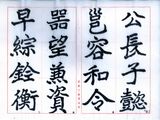 公長子懿
邕容和令
器望兼資
早綜銓衡